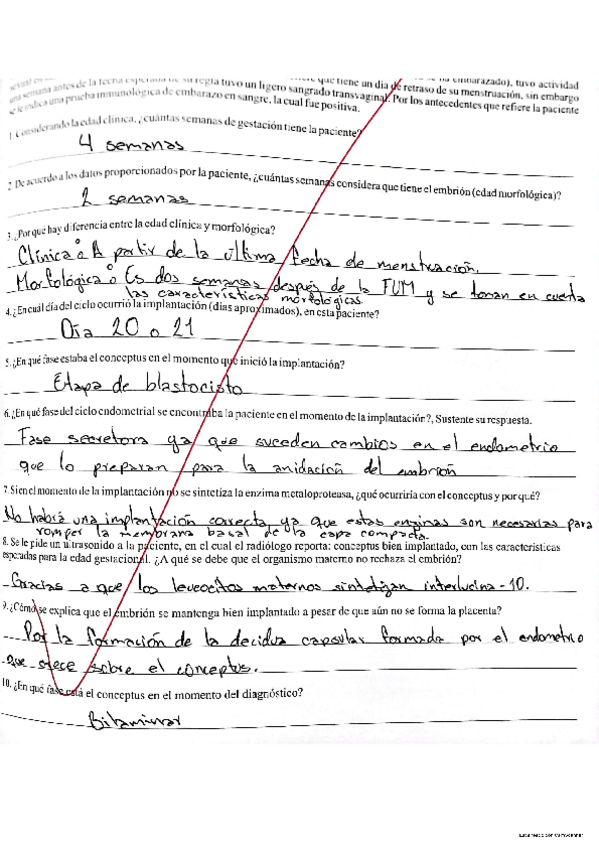 que tiene un día de retraso de su menstruación, sin embargo embarazado), tuvo actividad
una semana antes de la fecha esperada de su regla tuvo un ligero sangrado transvaginal. Por los antecedentes que refiere la paciente
se le indica una prueba inmunológica de embarazo en sangre, la cual fue positiva.
1. Considerando la edad clínica, ¿cuántas semanas de gestación tiene la paciente?
4 semanas
2. De acuerdo a los datos proporcionados por la paciente, ¿cuántas semanas considera que tiene el embrión (edad morfológica)?
2 semanas
3. ¿Por qué hay diferencia entre la edad clínica y morfológica?
Clínica: A partir de la última fecha de menstruación.
Morfológica: Es dos semanas después de la FUM y se toman en cuenta
las características morfológicas.
4. ¿En cuál día del ciclo ocurrió la implantación (días aproximados), en esta paciente?
Día 20 o 21
5. ¿En qué fase estaba el conceptus en el momento que inició la implantación?
Etapa de blastocisto
6. ¿En qué fase del ciclo endometrial se encontraba la paciente en el momento de la implantación?, Sustente su respuesta.
Fase secretora ya que suceden cambios en el endometrio
que lo preparan para la anidación del embrión
7. Si en el momento de la implantación no se sintetiza la enzima metaloproteasa, ¿qué ocurriría con el conceptus y por qué?
No habrá una implantación correcta, ya que estas enzimas son necesarias para
romper la membrana basal de la capa compacta.
8. Se le pide un ultrasonido a la paciente, en el cual el radiólogo reporta: conceptus bien implantado, con las características
esperadas para la edad gestacional. ¿A qué se debe que el organismo materno no rechaza el embrión?
Gracias a que los leucocitos maternos sintetizan interlucina-10.
9. ¿Cómo se explica que el embrión se mantenga bien implantado a pesar de que aún no se forma la placenta?
Por la formación de la decidua capsular formada por el endometrio
que crece sobre el conceptus.
10. ¿En qué fase está el conceptus en el momento del diagnóstico?
Bilaminar